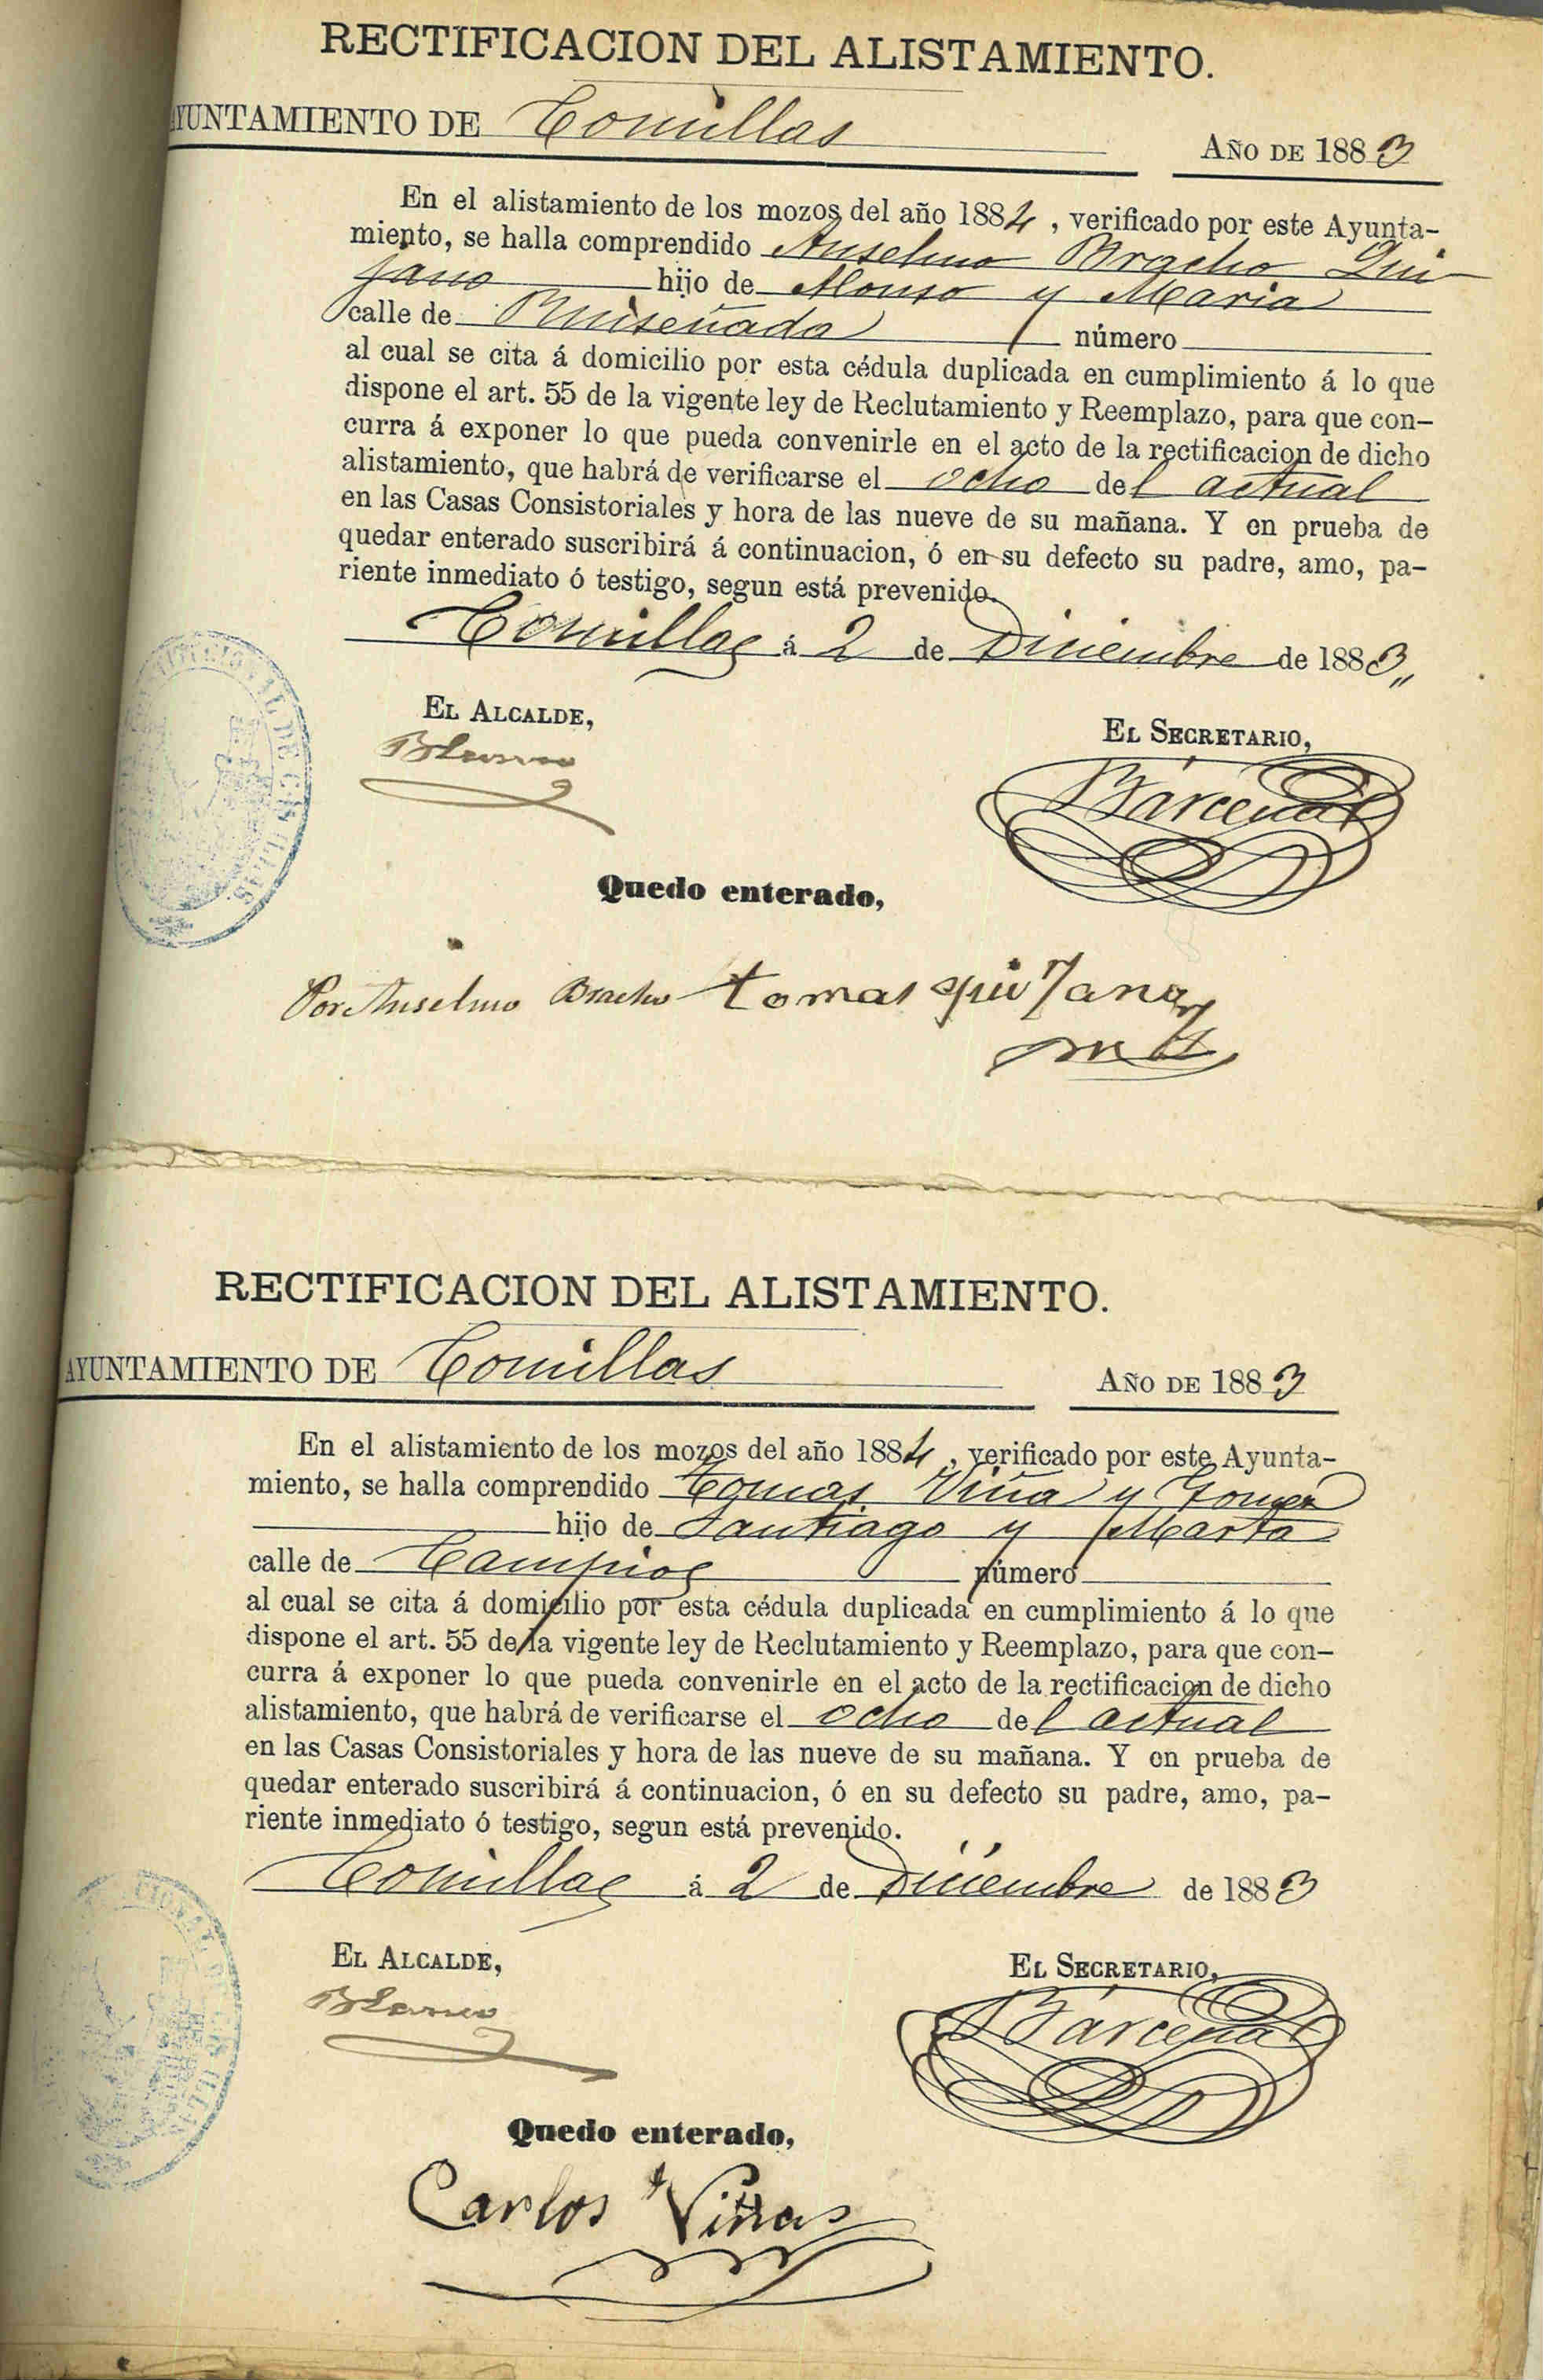 RECTIFICACION DEL ALISTAMIENTO.
AYUNTAMIENTO DE Comillas
AÑO DE 1883
En el alistamiento de los mozos del año 1884, verificado por este Ayunta-
miento, se halla comprendido Anselmo Bracho Qui-
jano hijo de Alonso y Maria
calle de Ruiseñada número
al cual se cita á domicilio por esta cédula duplicada en cumplimiento á lo que
dispone el art. 55 de la vigente ley de Reclutamiento y Reemplazo, para que con-
curra á exponer lo que pueda convenirle en el acto de la rectificacion de dicho
alistamiento, que habrá de verificarse el ocho del actual
en las Casas Consistoriales y hora de las nueve de su mañana. Y en prueba de
quedar enterado suscribirá á continuacion, ó en su defecto su padre, amo, pa-
riente inmediato ó testigo, segun está prevenido.
Comillas á 2 de Diciembre de 1883
EL ALCALDE,
EL SECRETARIO,
Blanco
Bárcenas
Quedo enterado,
Por Anselmo Bracho tomas quijano
RECTIFICACION DEL ALISTAMIENTO.
AYUNTAMIENTO DE Comillas
AÑO DE 1883
En el alistamiento de los mozos del año 1884, verificado por este Ayunta-
miento, se halla comprendido Tomas Viña y
hijo de Santiago y Marta
calle de Campios número
al cual se cita á domicilio por esta cédula duplicada en cumplimiento á lo que
dispone el art. 55 de la vigente ley de Reclutamiento y Reemplazo, para que con-
curra á exponer lo que pueda convenirle en el acto de la rectificacion de dicho
alistamiento, que habrá de verificarse el ocho del actual
en las Casas Consistoriales y hora de las nueve de su mañana. Y en prueba de
quedar enterado suscribirá á continuacion, ó en su defecto su padre, amo, pa-
riente inmediato ó testigo, segun está prevenido.
Comillas á 2 de Diciembre de 1883
EL ALCALDE,
EL SECRETARIO,
Blanco
Bárcenas
Quedo enterado,
Carlos Viñas